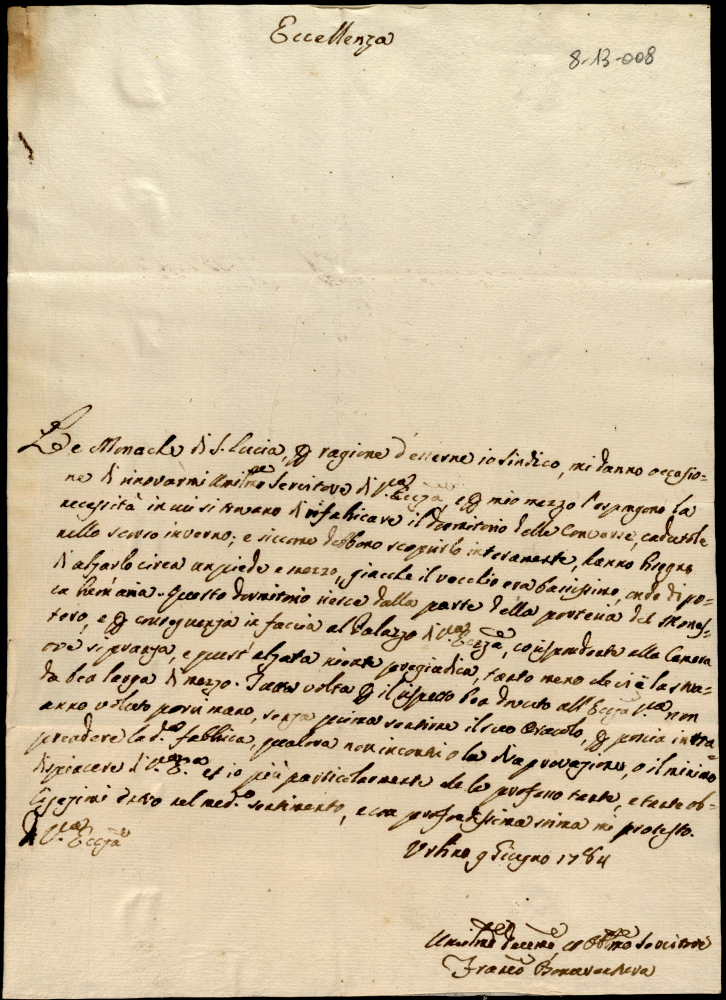 Eccellenza
8-13-008
Le Monache di S. Lucia, per ragione d'esserne io Sindico, mi danno occasio=
ne di rinovarmi Umilmo Servitore di V.ra Ecc.za, e per mio mezzo l'espongono la
necessità in cui si trovano di rifabricare il dormitorio delle Converse, cadutole
nello scorso inverno; e siccome debbono scoprirlo interamente, hanno bisogno
di alzarlo circa un piede e mezzo, giacché il vecchio era bassissimo, onde di po=
ca ben aria. Questo dormitorio riesce dalla parte della porteria del Monas=
tero, e per conseguenza in faccia al Palazzo di V.ra Ecc.za, corrispondente alla Camera
ove si pranza, e quest'alzata niente pregiudica, tanto meno che vi è la stra=
da ben larga di mezzo. Tutta volta per il rispetto ben dovuto all'Ecc.za V.ra non
anno voluto porvi mano, senza prima sentirne il suo Oracolo, per poscia intra=
prendere la d.a fabbrica, qualora non incontri o la disaprovazione, o il minimo
dispiacere di V.ra Ecc.za et io più particolarmente che le professo tante, e tante ob=
bligazioni devo nel med.o sentimento, e con profondissima stima mi protesto.
Di V.ra Ecc.za
Urbino 9 Giugno 1784
Umilmo Devmo ed Obblmo Servitore
Franco Bonaventura